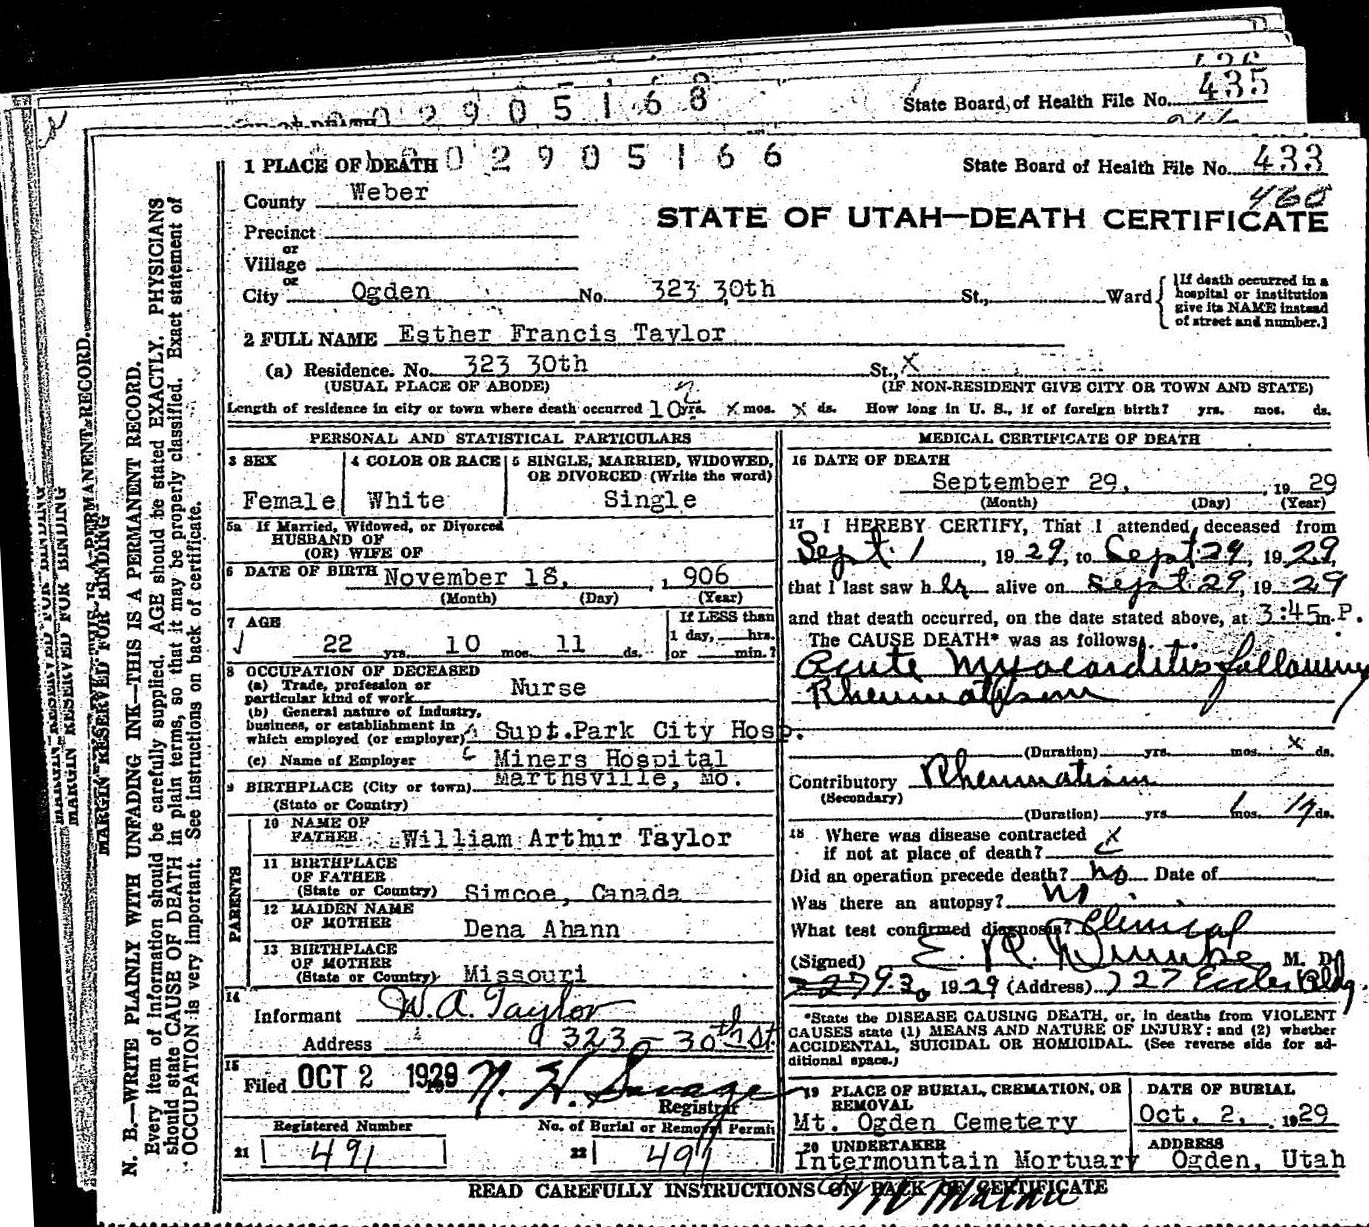 435
0 2 9 0 5 1 6 8
State Board of Health File No. 435
1 PLACE OF DEATH 0 2 9 0 5 1 6 6
State Board of Health File No. 433
460
County Weber
STATE OF UTAH—DEATH CERTIFICATE
Precinct
or
Village
or
City Ogden No. 323 30th St., Ward
[If death occurred in a
hospital or institution
give its NAME instead
of street and number.]
2 FULL NAME Esther Francis Taylor
(a) Residence. No. 323 30th St., X
(USUAL PLACE OF ABODE) (IF NON-RESIDENT GIVE CITY OR TOWN AND STATE)
Length of residence in city or town where death occurred 10 yrs. X mos. X ds. How long in U. S., if of foreign birth? yrs. mos. ds.
PERSONAL AND STATISTICAL PARTICULARS
3 SEX
Female
4 COLOR OR RACE
White
5 SINGLE, MARRIED, WIDOWED,
OR DIVORCED (Write the word)
Single
5a If Married, Widowed, or Divorced
HUSBAND OF
(OR) WIFE OF
6 DATE OF BIRTH November 18, 1906
(Month) (Day) (Year)
7 AGE
22 yrs. 10 mos. 11 ds.
If LESS than
1 day, hrs.
or min.?
8 OCCUPATION OF DECEASED
(a) Trade, profession or
particular kind of work Nurse
(b) General nature of industry,
business, or establishment in
which employed (or employer) Supt.Park City Hosp.
(c) Name of Employer Miners Hospital
9 BIRTHPLACE (City or town) Marthsville, Mo.
(State or Country)
PARENTS
10 NAME OF
FATHER William Arthur Taylor
11 BIRTHPLACE
OF FATHER
(State or Country) Simcoe, Canada
12 MAIDEN NAME
OF MOTHER Dena Ahann
13 BIRTHPLACE
OF MOTHER
(State or Country) Missouri
14
Informant W. A. Taylor
Address 323 - 30th St
15
Filed OCT 2 1929 N. H. Savage
Registrar
Registered Number
21 491
No. of Burial or Removal Permit
22 491
MEDICAL CERTIFICATE OF DEATH
16 DATE OF DEATH
September 29, 1929
(Month) (Day) (Year)
17 I HEREBY CERTIFY, That I attended deceased from
Sept. 1, 1929, to Sept 29, 1929,
that I last saw her alive on Sept 29, 1929
and that death occurred, on the date stated above, at 3:45 m. P.
The CAUSE DEATH* was as follows:
Acute Myocarditis following
Rheumatism
(Duration) yrs. mos. X ds.
Contributory Rheumatism
(Secondary)
(Duration) yrs. 1 mos. 14 ds.
18 Where was disease contracted
if not at place of death? X
Did an operation precede death? no Date of
Was there an autopsy? no
What test confirmed diagnosis? Clinical
(Signed) E. R. M. D.
9-30 1929 (Address) 727 Eccles Bldg.
*State the DISEASE CAUSING DEATH, or, in deaths from VIOLENT
CAUSES state (1) MEANS AND NATURE OF INJURY; and (2) whether
ACCIDENTAL, SUICIDAL OR HOMICIDAL. (See reverse side for ad-
ditional space.)
19 PLACE OF BURIAL, CREMATION, OR
REMOVAL
Mt. Ogden Cemetery
DATE OF BURIAL
Oct. 2, 1929
20 UNDERTAKER
Intermountain Mortuary
ADDRESS
Ogden, Utah
READ CAREFULLY INSTRUCTIONS ON BACK OF CERTIFICATE
MARGIN RESERVED FOR BINDING
N. B.—WRITE PLAINLY WITH UNFADING INK—THIS IS A PERMANENT RECORD.
Every item of information should be carefully supplied. AGE should be stated EXACTLY. PHYSICIANS
should state CAUSE OF DEATH in plain terms, so that it may be properly classified. Exact statement of
OCCUPATION is very important. See instructions on back of certificate.